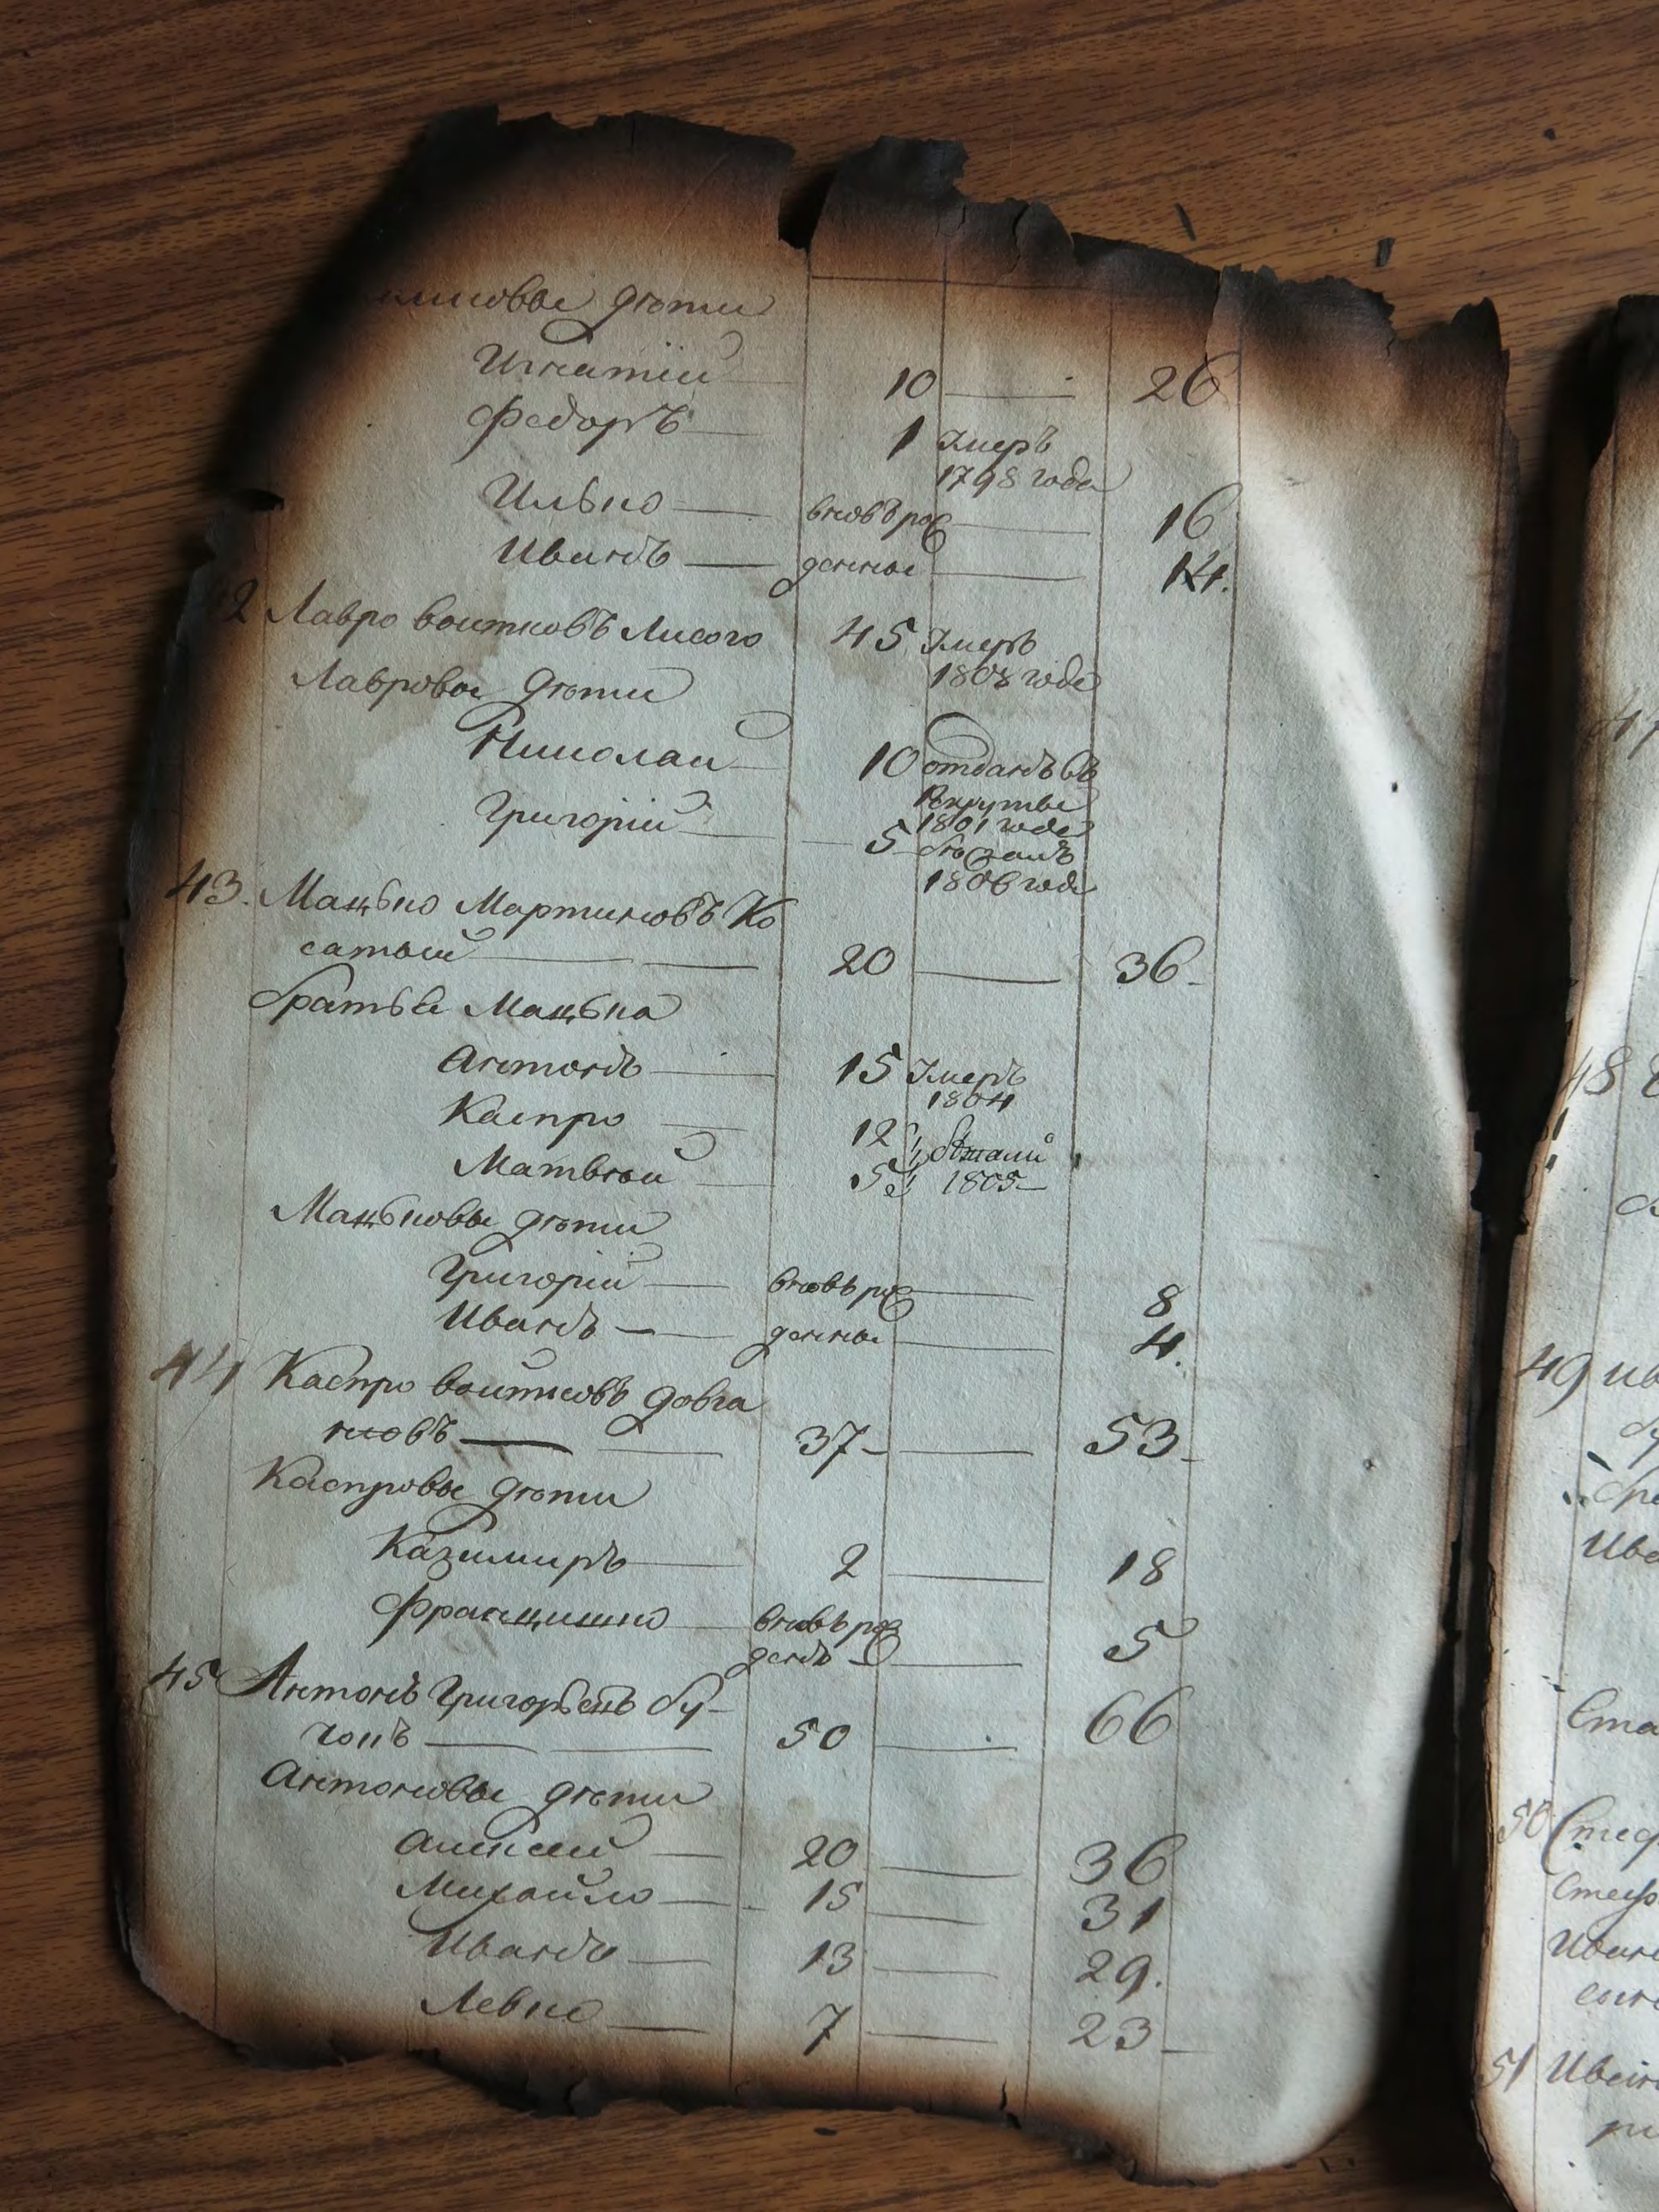 дѣти
Игнатій 10 26
Федоръ 1 Умеръ
1798 года
Илько вновь рож 16
Иванъ денные 14.
2 Лавро Воитковъ Лисого 45 Умеръ
1808 года
Лавровы дѣти
Николай 10 отданъ въ
Рекруты
1801 года
Григорій 5 бѣжалъ
1806 года
43. Мацько Мартиновъ Ко
сатый 20 36
братья Мацька
Антонъ 15 Умеръ
1804
Каспро 12 бежали
Матвѣй 5 1805
Мацьковы дѣти
Григорій вновь рож 8
Иванъ денные 4.
44 Каспро Войтковъ Довга
нювъ 37 53
Каспровы дѣти
Казимиръ 2 18
Францишко вновь рож
денъ 5
45 Антонъ Григорьевъ Бу-
66
50
Антоновы дѣти
Алексей 20 36
Михайло 15 31
Иванъ 13 29.
Левко 7 23
47
48
49 Ив
Ива
Ста
50 Стеф
Стеф
Иван
51 Иван